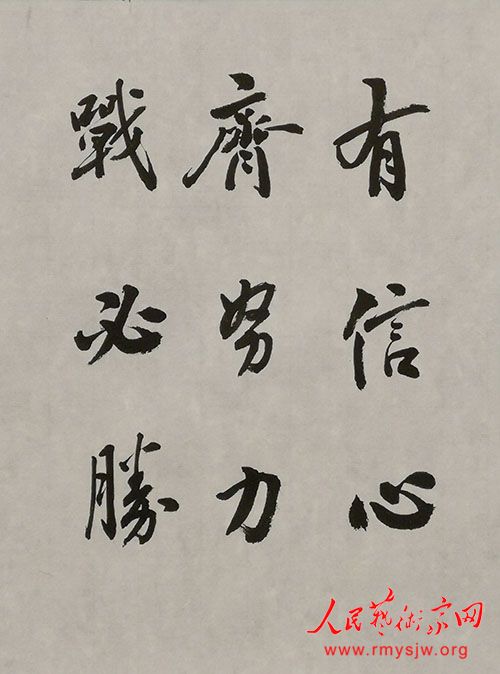 有信心
齊努力
戰必勝
人民藝術家网
www.rmysjw.org